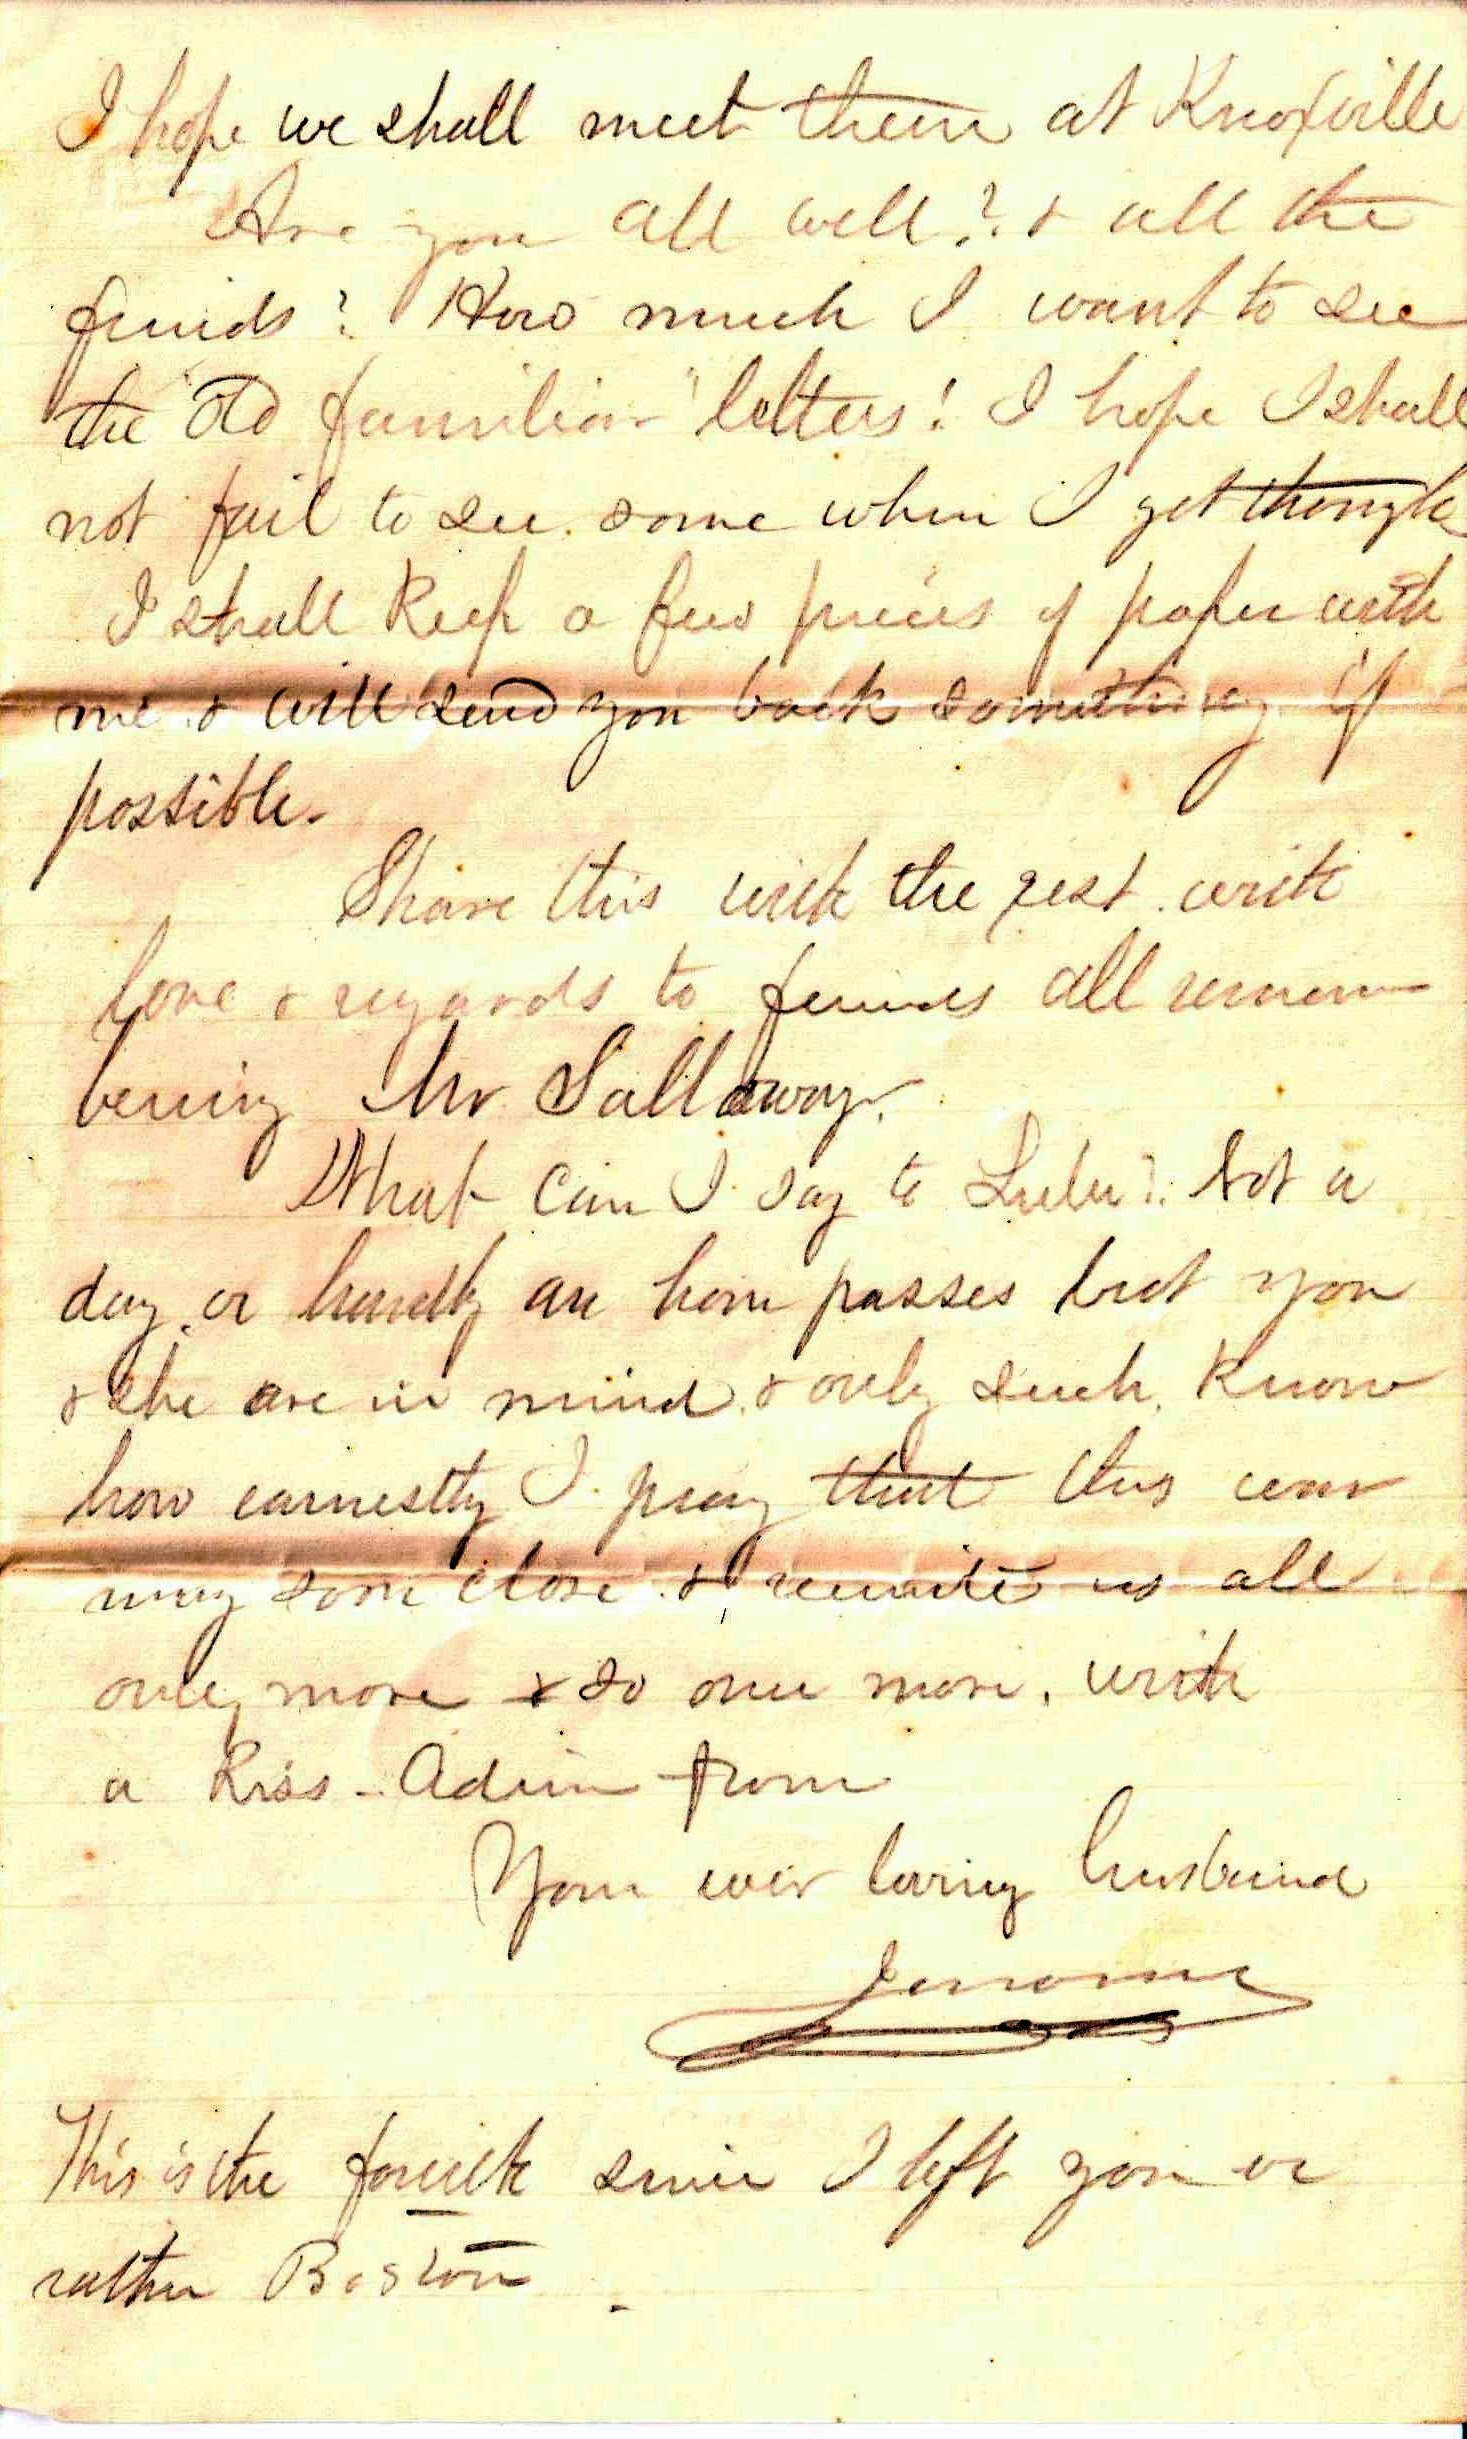 I hope we shall meet them at Knoxville
Are you all well? & all the
friends? How much I want to see
the "old familiar" letters! I hope I shall
not fail to see some when I get through
I shall keep a few pieces of paper with
me & will send you back something if
possible.
Share this with the rest with
love & regards to friends all remem
bering Mr Sallaway.
What can I say to Lulu? Not a
day or hardly an hour passes but you
& she are in mind & only such know
how earnestly I pray that this war
may soon close & reunite us all
once more & so once more, with
a kiss - Adieu from
Your ever loving husband
Jerome
This is the fourth since I left you or
rather Boston.